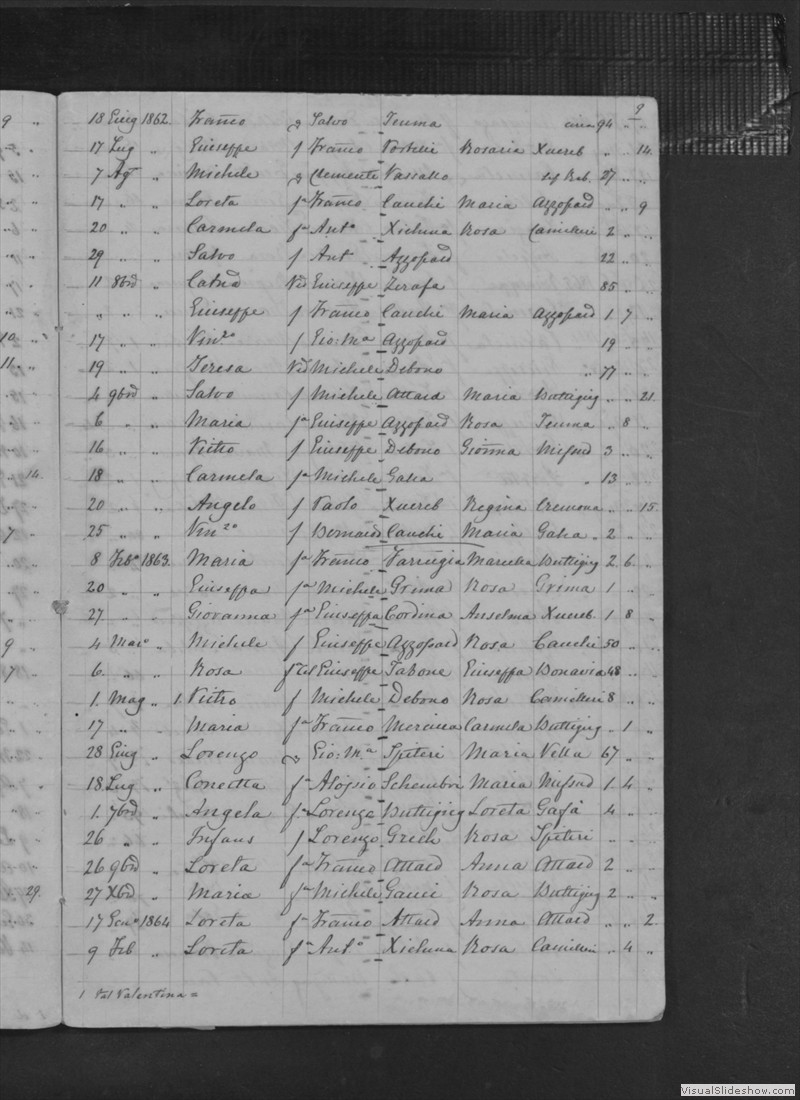 9
18 Giug 1862 Franco Salvo Tonna circa 94 " "
17 Lug " Giuseppe f Franco Portelli Rosaria Xuereb " " 14
7 Agto " Michele Clemente Vassallo 27 " "
17 " " Loreta fa Franco Cauchi Maria Azzopard " " 9
20 " " Carmela fa Anto Xicluna Rosa Camilleri 2 " "
29 " " Salvo f Ant Azzopard 22 " "
11 8bre " Catna Va Giuseppe Zerafa 85 " "
" " " Giuseppe f Franco Cauchi Maria Azzopard 1 7 "
17 " " Vinzo f Gio: Ma Azzopard 19 " "
19 " " Teresa Va Michele Debono " 77 " "
4 9bre " Salvo f Michele Attard Maria Buttigieg " " 21
6 " " Maria fa Giuseppe Azzopard Rosa Tonna " 8 "
16 " " Pietro f Giuseppe Debono Gioanna Mifsud 3 " "
18 " " Carmela fa Michele Galea " 13 "
20 " " Angelo f Paolo Xuereb Regina Cremona " " 15
25 " " Vinzo f Bernard Cauchi Maria Galea 2 " "
8 Febo 1863 Maria fa Franco Farrugia Buttigieg 2 6 "
20 " " Giuseppa fa Michele Grima Rosa Grima 1 " "
27 " " Giovanna fa Giuseppe Cordina Anselma Xuereb 1 8 "
4 Maro " Michele f Giuseppe Azzopard Rosa Cauchi 50 " "
6 " " Rosa Giuseppe Tabone Giuseppa Bonavia 48 " "
1 Mag " 1 Pietro f Michele Debono Rosa Camilleri 8 " "
17 " " Maria fa Franco Mercieca Carmela Buttigieg " 1 "
28 Giug " Lorenzo Gio: Ma Spiteri Maria Vella 67 " "
18 Lug " Concetta fa Aloysio Schembri Maria Mifsud 1 4 "
1 7bre " Angela fa Lorenzo Buttigieg Loreta Gafà 4 " "
26 " " Infans f Lorenzo Grech Rosa Spiteri " "
26 9bre " Loreta fa Franco Attard Anna Attard 2 " "
27 Xbre " Maria fa Michele Gauci Rosa Buttigieg 2 " "
17 Geno 1864 Loreta fa Franco Attard Anna Attard " " 2
9 Feb " Loreta fa Anto Xicluna Rosa Camilleri " 4 "
1 Val Valentina =
VisualSlideshow.com